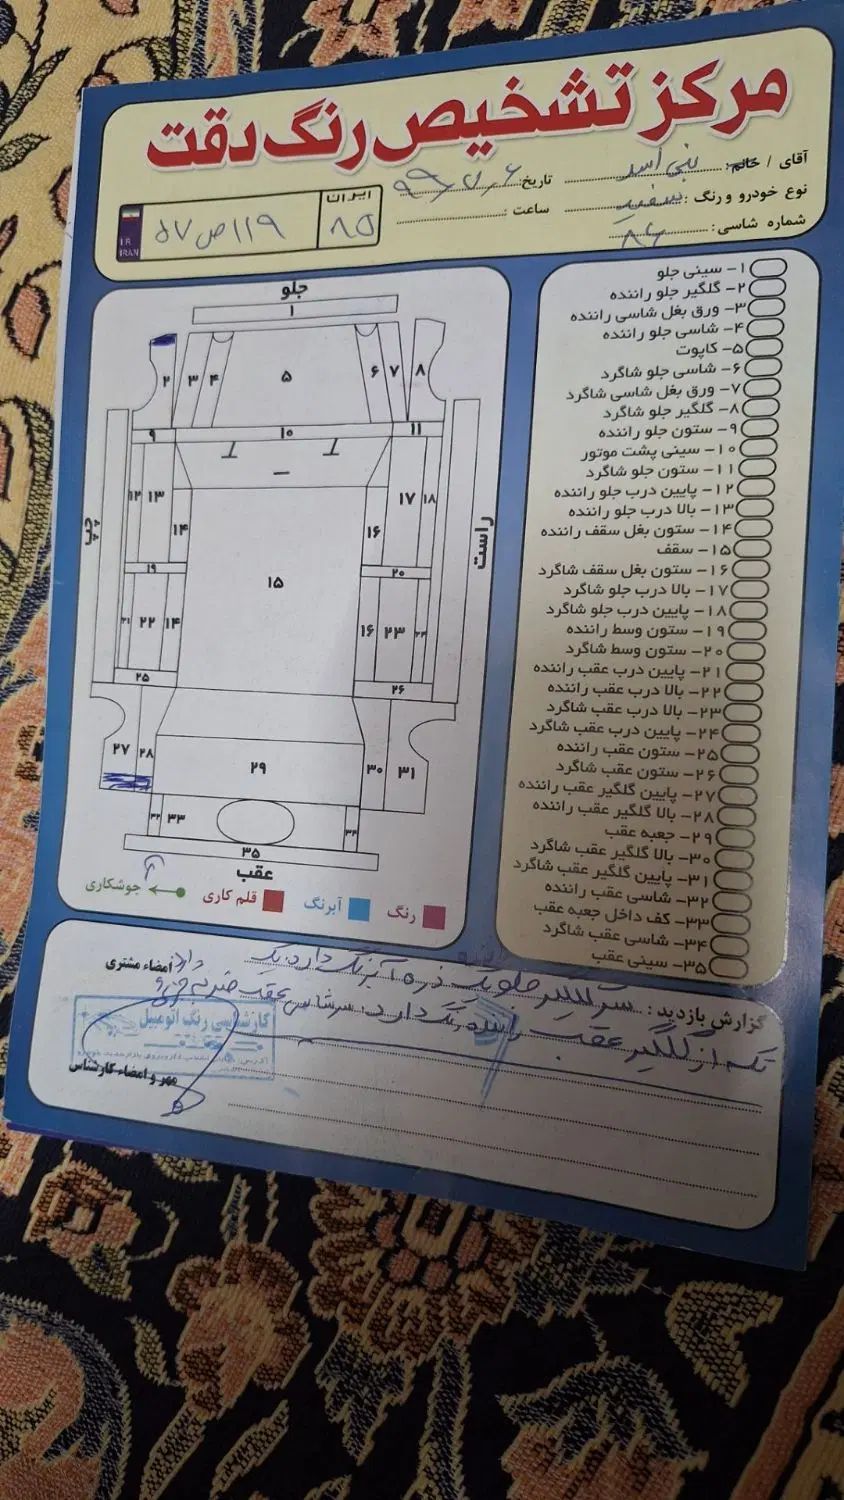 مرکز تشخیص رنگ دقت
آقای / خانم: نبی اسد
تاریخ: ۹۹٫۷٫۰۶
نوع خودرو و رنگ: سفید
ساعت:
شماره شاسی: ۸۶
ایران
۸۵
۱۱۹ ص ۵۷
I R
IRAN
۱- سینی جلو
۲- گلگیر جلو راننده
۳- ورق بغل شاسی راننده
۴- شاسی جلو راننده
۵- کاپوت
۶- شاسی جلو شاگرد
۷- ورق بغل شاسی شاگرد
۸- گلگیر جلو شاگرد
۹- ستون جلو راننده
۱۰- سینی پشت موتور
۱۱- ستون جلو شاگرد
۱۲- پایین درب جلو راننده
۱۳- بالا درب جلو راننده
۱۴- ستون بغل سقف راننده
۱۵- سقف
۱۶- ستون بغل سقف شاگرد
۱۷- بالا درب جلو شاگرد
۱۸- پایین درب جلو شاگرد
۱۹- ستون وسط راننده
۲۰- ستون وسط شاگرد
۲۱- پایین درب عقب راننده
۲۲- بالا درب عقب راننده
۲۳- بالا درب عقب شاگرد
۲۴- پایین درب عقب شاگرد
۲۵- ستون عقب راننده
۲۶- ستون عقب شاگرد
۲۷- پایین گلگیر عقب راننده
۲۸- بالا گلگیر عقب راننده
۲۹- جعبه عقب
۳۰- بالا گلگیر عقب شاگرد
۳۱- پایین گلگیر عقب شاگرد
۳۲- شاسی عقب راننده
۳۳- کف داخل جعبه عقب
۳۴- شاسی عقب شاگرد
۳۵- سینی عقب
جلو
۱
۲ ۳ ۴ ۵ ۶ ۷ ۸
۹ ۱۰ ۱۱
۱۲ ۱۳ ۱۴ ۱۶ ۱۷ ۱۸
چپ راست
۱۹ ۱۵ ۲۰
۲۱ ۲۲ ۱۴ ۱۶ ۲۳ ۲۴
۲۵ ۲۶
۲۷ ۲۸ ۲۹ ۳۰ ۳۱
۳۲ ۳۳ ۳۴
۳۵
عقب
رنگ آبرنگ قلم کاری جوشکاری
گزارش بازدید: سر گلگیر جلو یک ذره آبرنگ دارد یک
تکه از گلگیر عقب راننده رنگ دارد سر شاسی عقب ضربه جزئی دارد
امضاء مشتری
کارشناسی رنگ اتومبیل
مهر و امضاء کارشناس